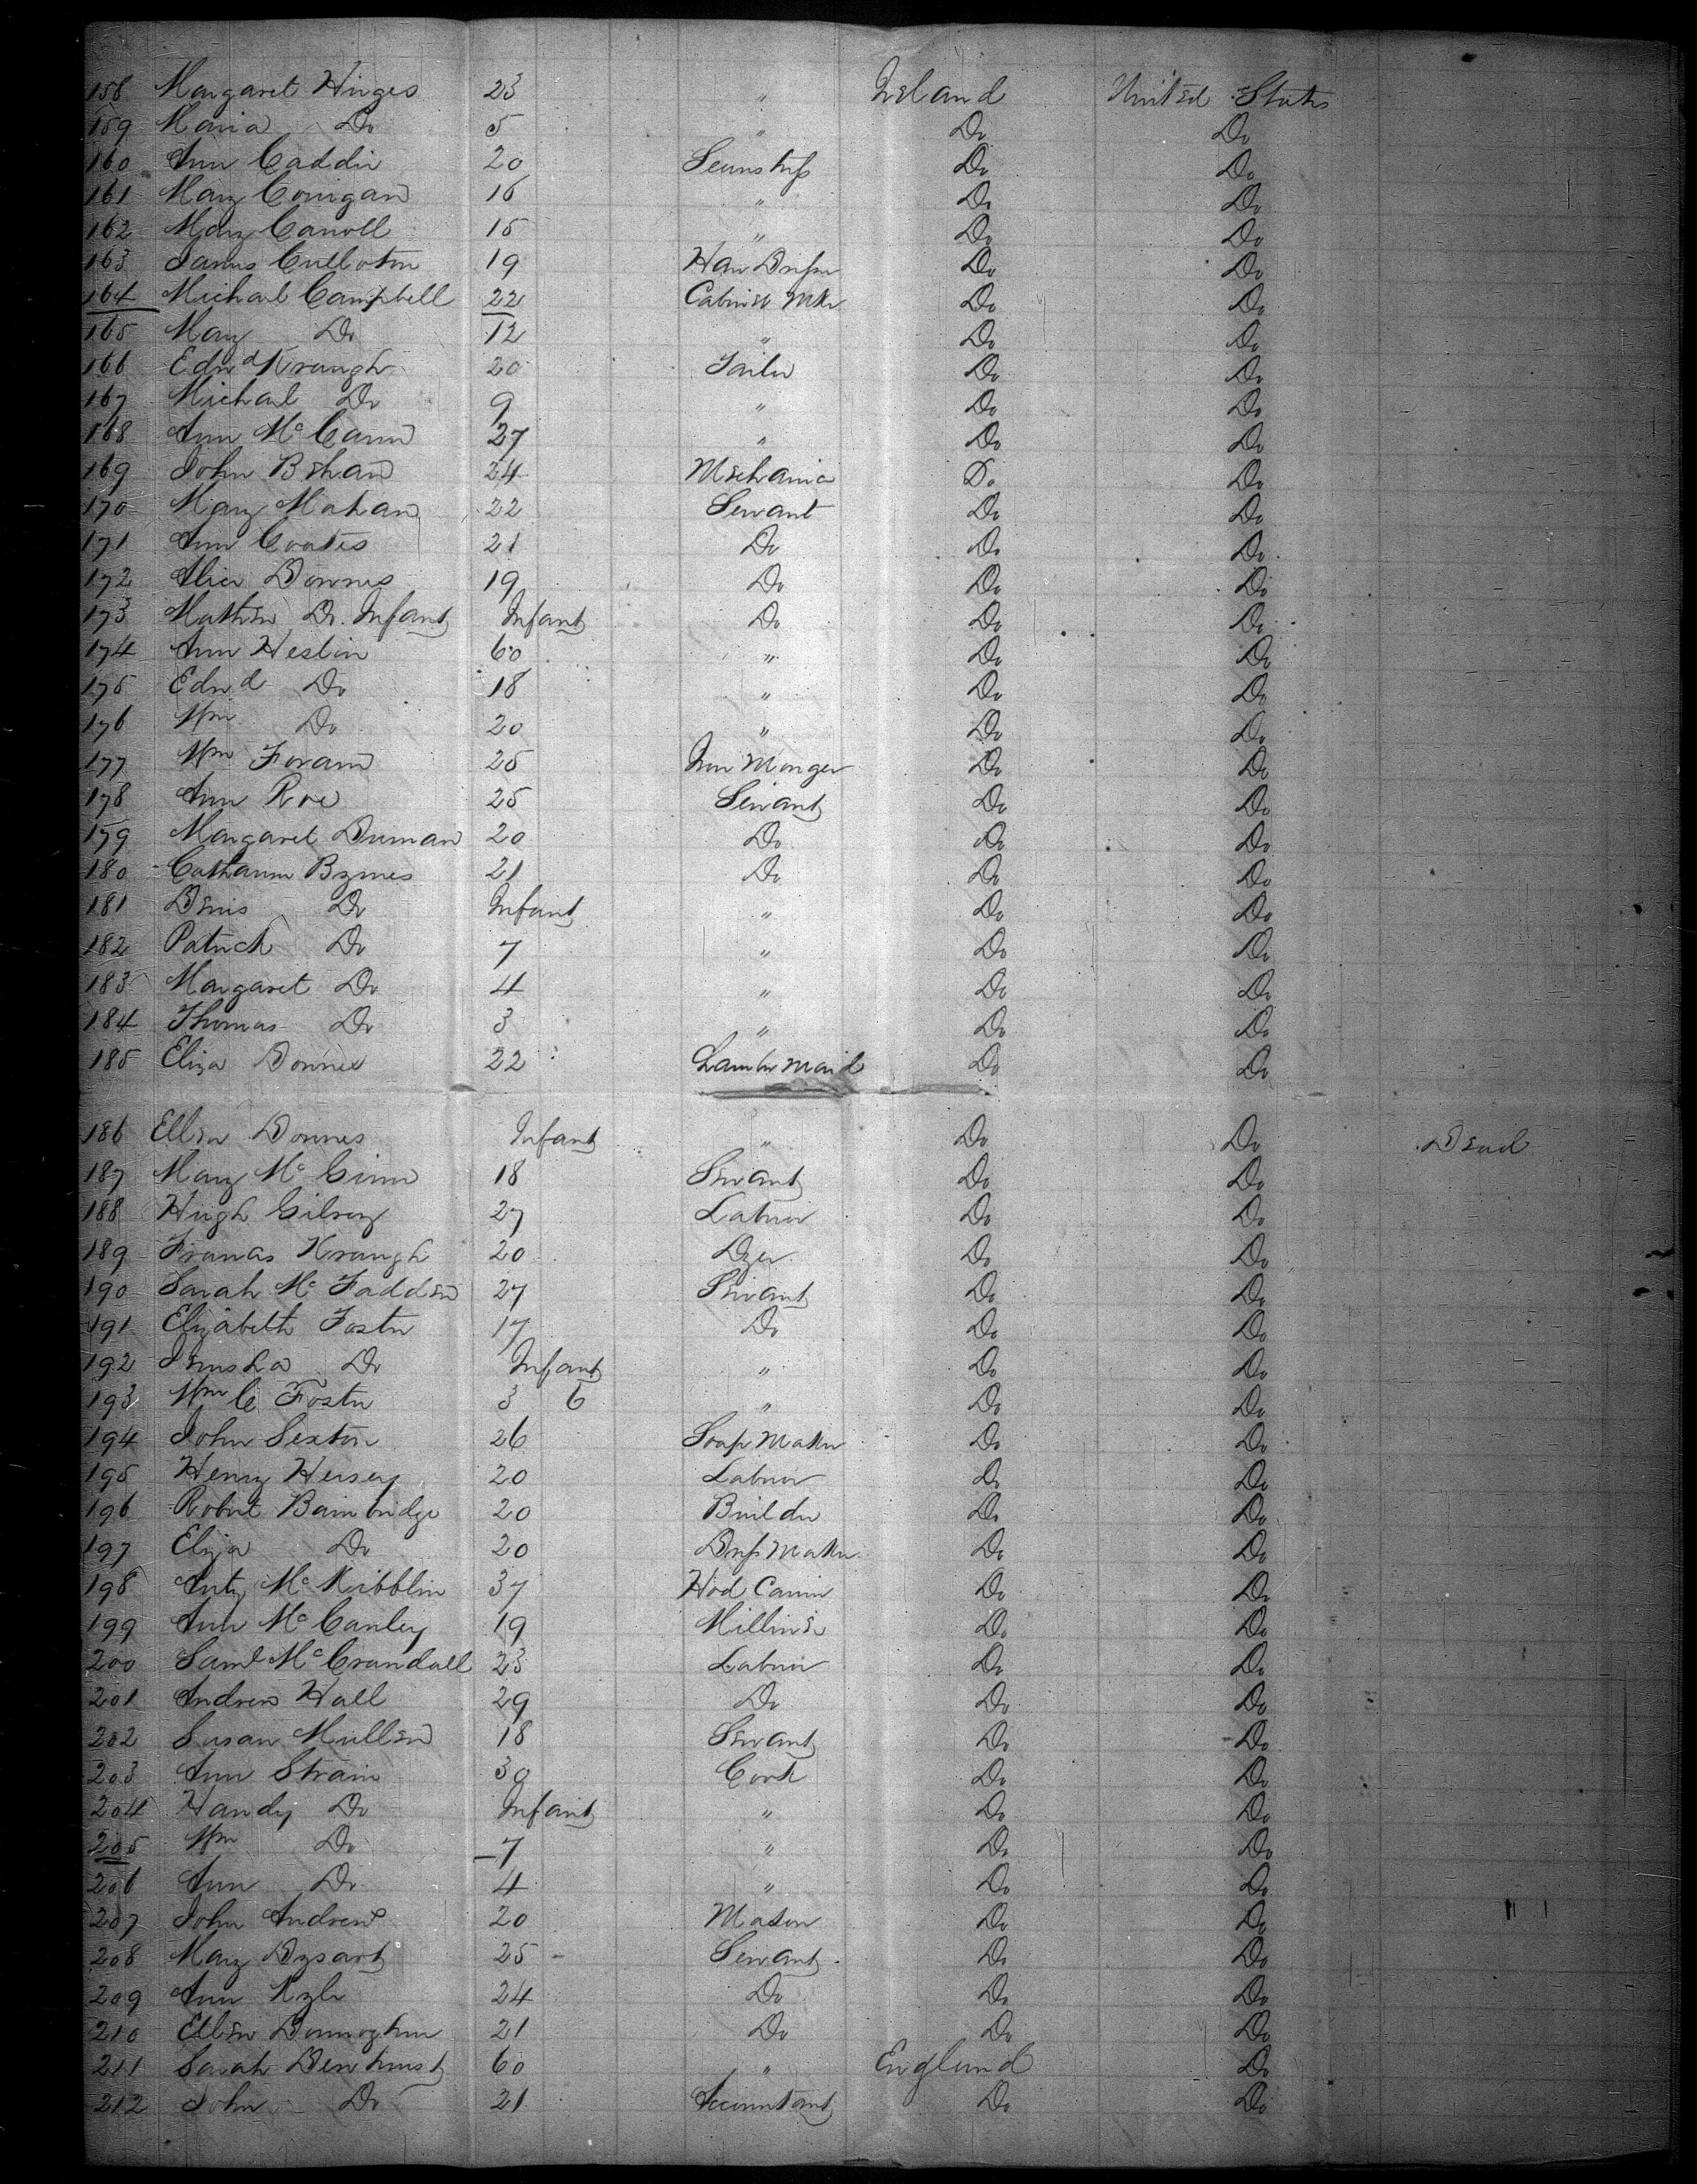 158 Margaret Hinges 23 " Ireland United States
159 Maria Do 5 " Do Do
160 Ann Caddin 20 Seamstress Do Do
161 Mary Corrigan 16 " Do Do
162 Mary Carroll 15 " Do Do
163 James Culloton 19 Hair Dresser Do Do
164 Michael Campbell 22 Cabinet Mkr Do Do
165 Mary Do 12 " Do Do
166 Edwd Kraugh 20 Tailor Do Do
167 Michael Do 9 " Do Do
168 Ann McCann 27 " Do Do
169 John Behan 24 Mechanic Do Do
170 Mary Mahan 22 Servant Do Do
171 Ann Coates 21 Do Do Do
172 Alice Downes 19 Do Do Do
173 Mathew Do. Infant Infant Do Do Do
174 Ann Heslin 60 " Do Do
175 Edwd Do 18 " Do Do
176 Wm Do 20 " Do Do
177 Wm Foran 25 Iron Monger Do Do
178 Ann Roe 25 Servant Do Do
179 Margaret Durnan 20 Do Do Do
180 Catharine Byrnes 21 Do Do Do
181 Denis Do Infant " Do Do
182 Patrick Do 7 " Do Do
183 Margaret Do 4 " Do Do
184 Thomas Do 3 " Do Do
185 Eliza Downes 22 Chamber Maid Do Do
186 Ellen Downes Infant " Do Do Dead
187 Mary McGinn 18 Servant Do Do
188 Hugh Gilroy 27 Labour Do Do
189 Francas Kraugh 20 Dyer Do Do
190 Sarah McFadden 27 Servant Do Do
191 Elizabeth Foster 17 Do Do Do
192 Jerusha Do Infant " Do Do
193 Wm C Foster 3 6 " Do Do
194 John Sexton 26 Soap Maker Do Do
195 Henry Hersey 20 Labour Do Do
196 Robert Bainbridge 20 Builder Do Do
197 Eliza Do 20 Dress Maker Do Do
198 Anty McKibblin 37 Hod Carrier Do Do
199 Ann McCauley 19 Milliner Do Do
200 Saml McCrandall 23 Labour Do Do
201 Andrew Hall 29 Do Do Do
202 Susan Mullen 18 Servant Do Do
203 Ann Strain 30 Cook Do Do
204 Handy Do Infant " Do Do
205 Wm Do 7 " Do Do
206 Ann Do 4 " Do Do
207 John Andrews 20 Mason Do Do
208 Mary Dysart 25 Servant Do Do
209 Ann Kyle 24 Do Do Do
210 Ellen Donnoghue 21 Do Do Do
211 Sarah Dewhurst 60 " England Do
212 John Do 21 Accountant Do Do